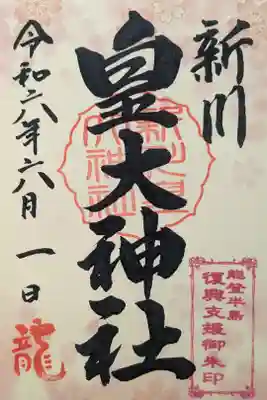 新川
皇大神社
令和六年六月一日
龍
能登半島
復興支援御朱印